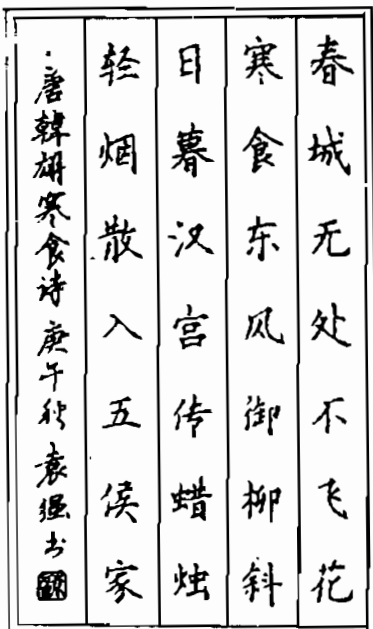 春城无处不飞花
寒食东风御柳斜
日暮汉宫传蜡烛
轻烟散入五侯家
唐韩翃寒食诗 庚午秋 袁强书